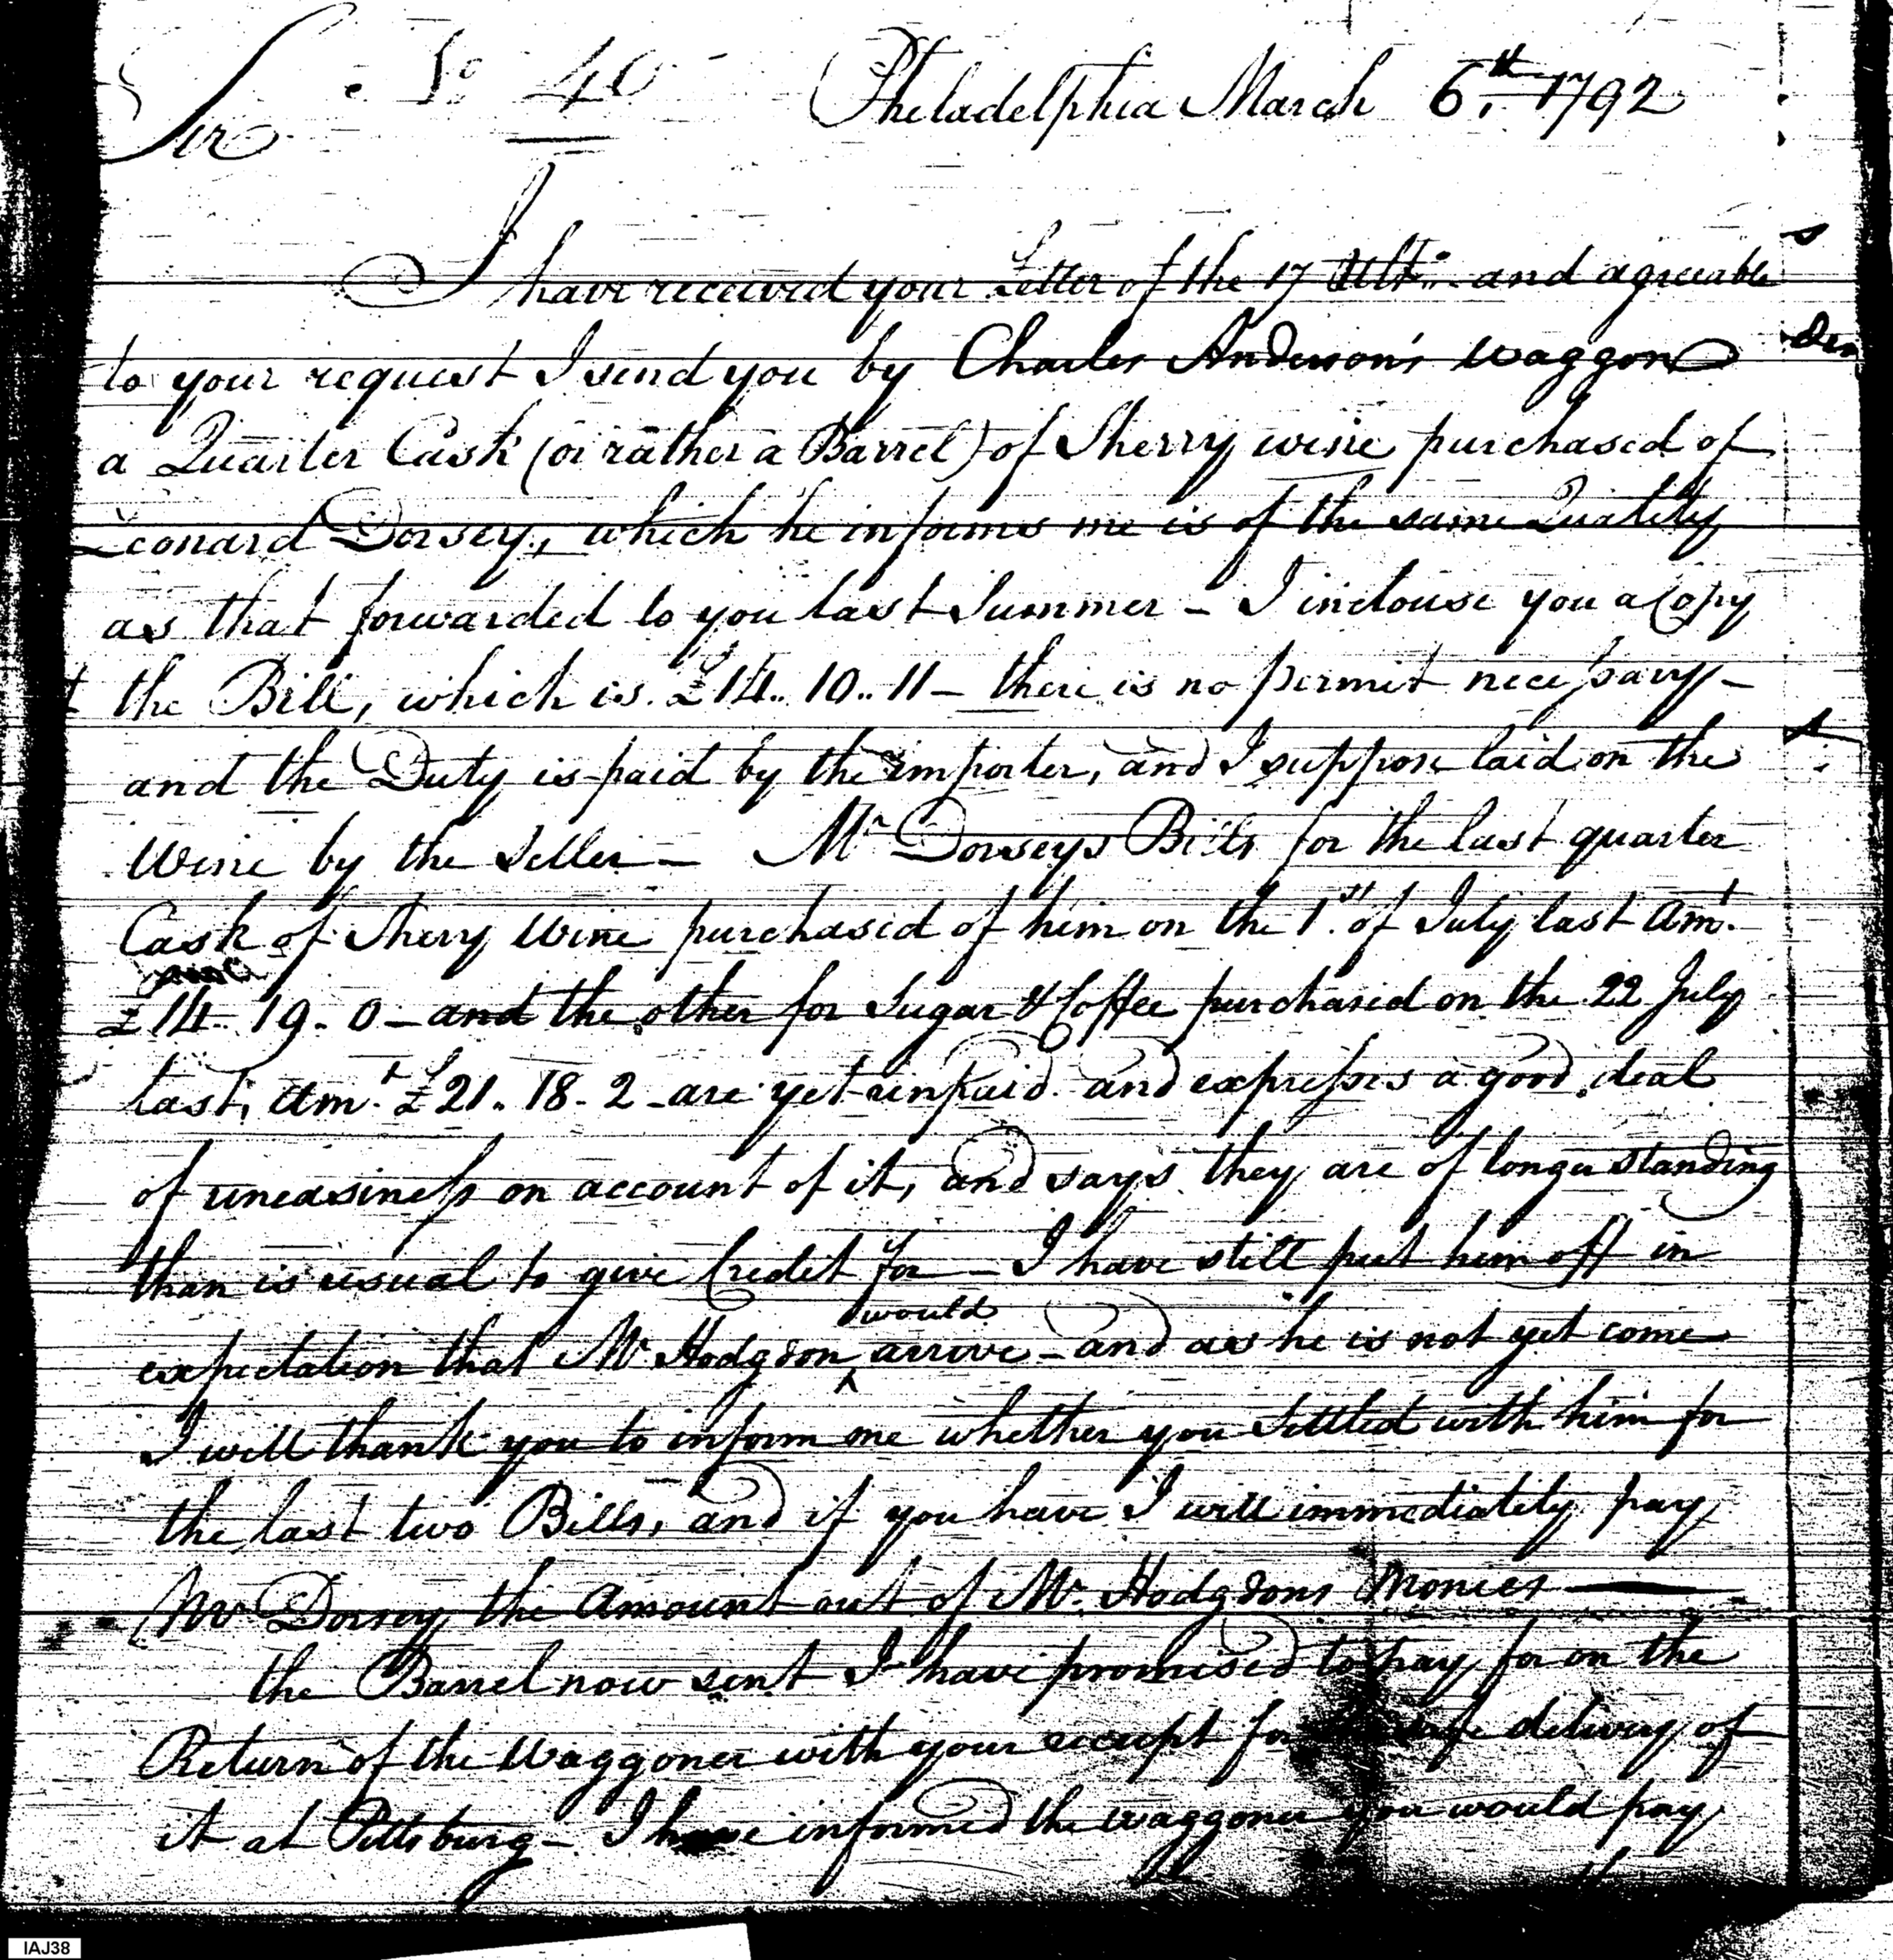 Sir No 40 Philadelphia March 6.th 1792
I have received your Letter of the 17 Ulto. and agreeable
to your request I send you by Charles Anderson's Waggon
a Quarter Cask (or rather a Barrel) of Sherry wine purchased of
Leonard Dorsey, which he informs me is of the same Quality
as that forwarded to you last Summer - I inclouse you a Copy
the Bill, which is £14.. 10.. 11 - there is no permit necessary -
and the Duty is paid by the importer, and I suppose laid on the
Wine by the Seller - Mr Dorseys Bills for the last quarter
Cask of Sherry Wine purchased of him on the 1.st of July last Amt.
£14.. 19. 0 - and the other for Sugar & Coffee purchased on the 22 July
last, Amt. £21.. 18. 2 - are yet unpaid. and expresses a good deal
of uneasiness on account of it, and says they are of longer standing
than is usual to give Credit for - I have still put him off in
would
expectation that Mr Hodgdon ^ arrive - and as he is not yet come
I will thank you to inform me whether you Settled with him for
the last two Bills, and if you have I will immediately pay
Mr Dorsey the Amount out of Mr. Hodgdons Monies
the Barrel now sent I have promised to pay for on the
Return of the Waggoner with your receipt for safe delivery of
it at Pittsburg - I have informed the Waggoner you would pay
IAJ38